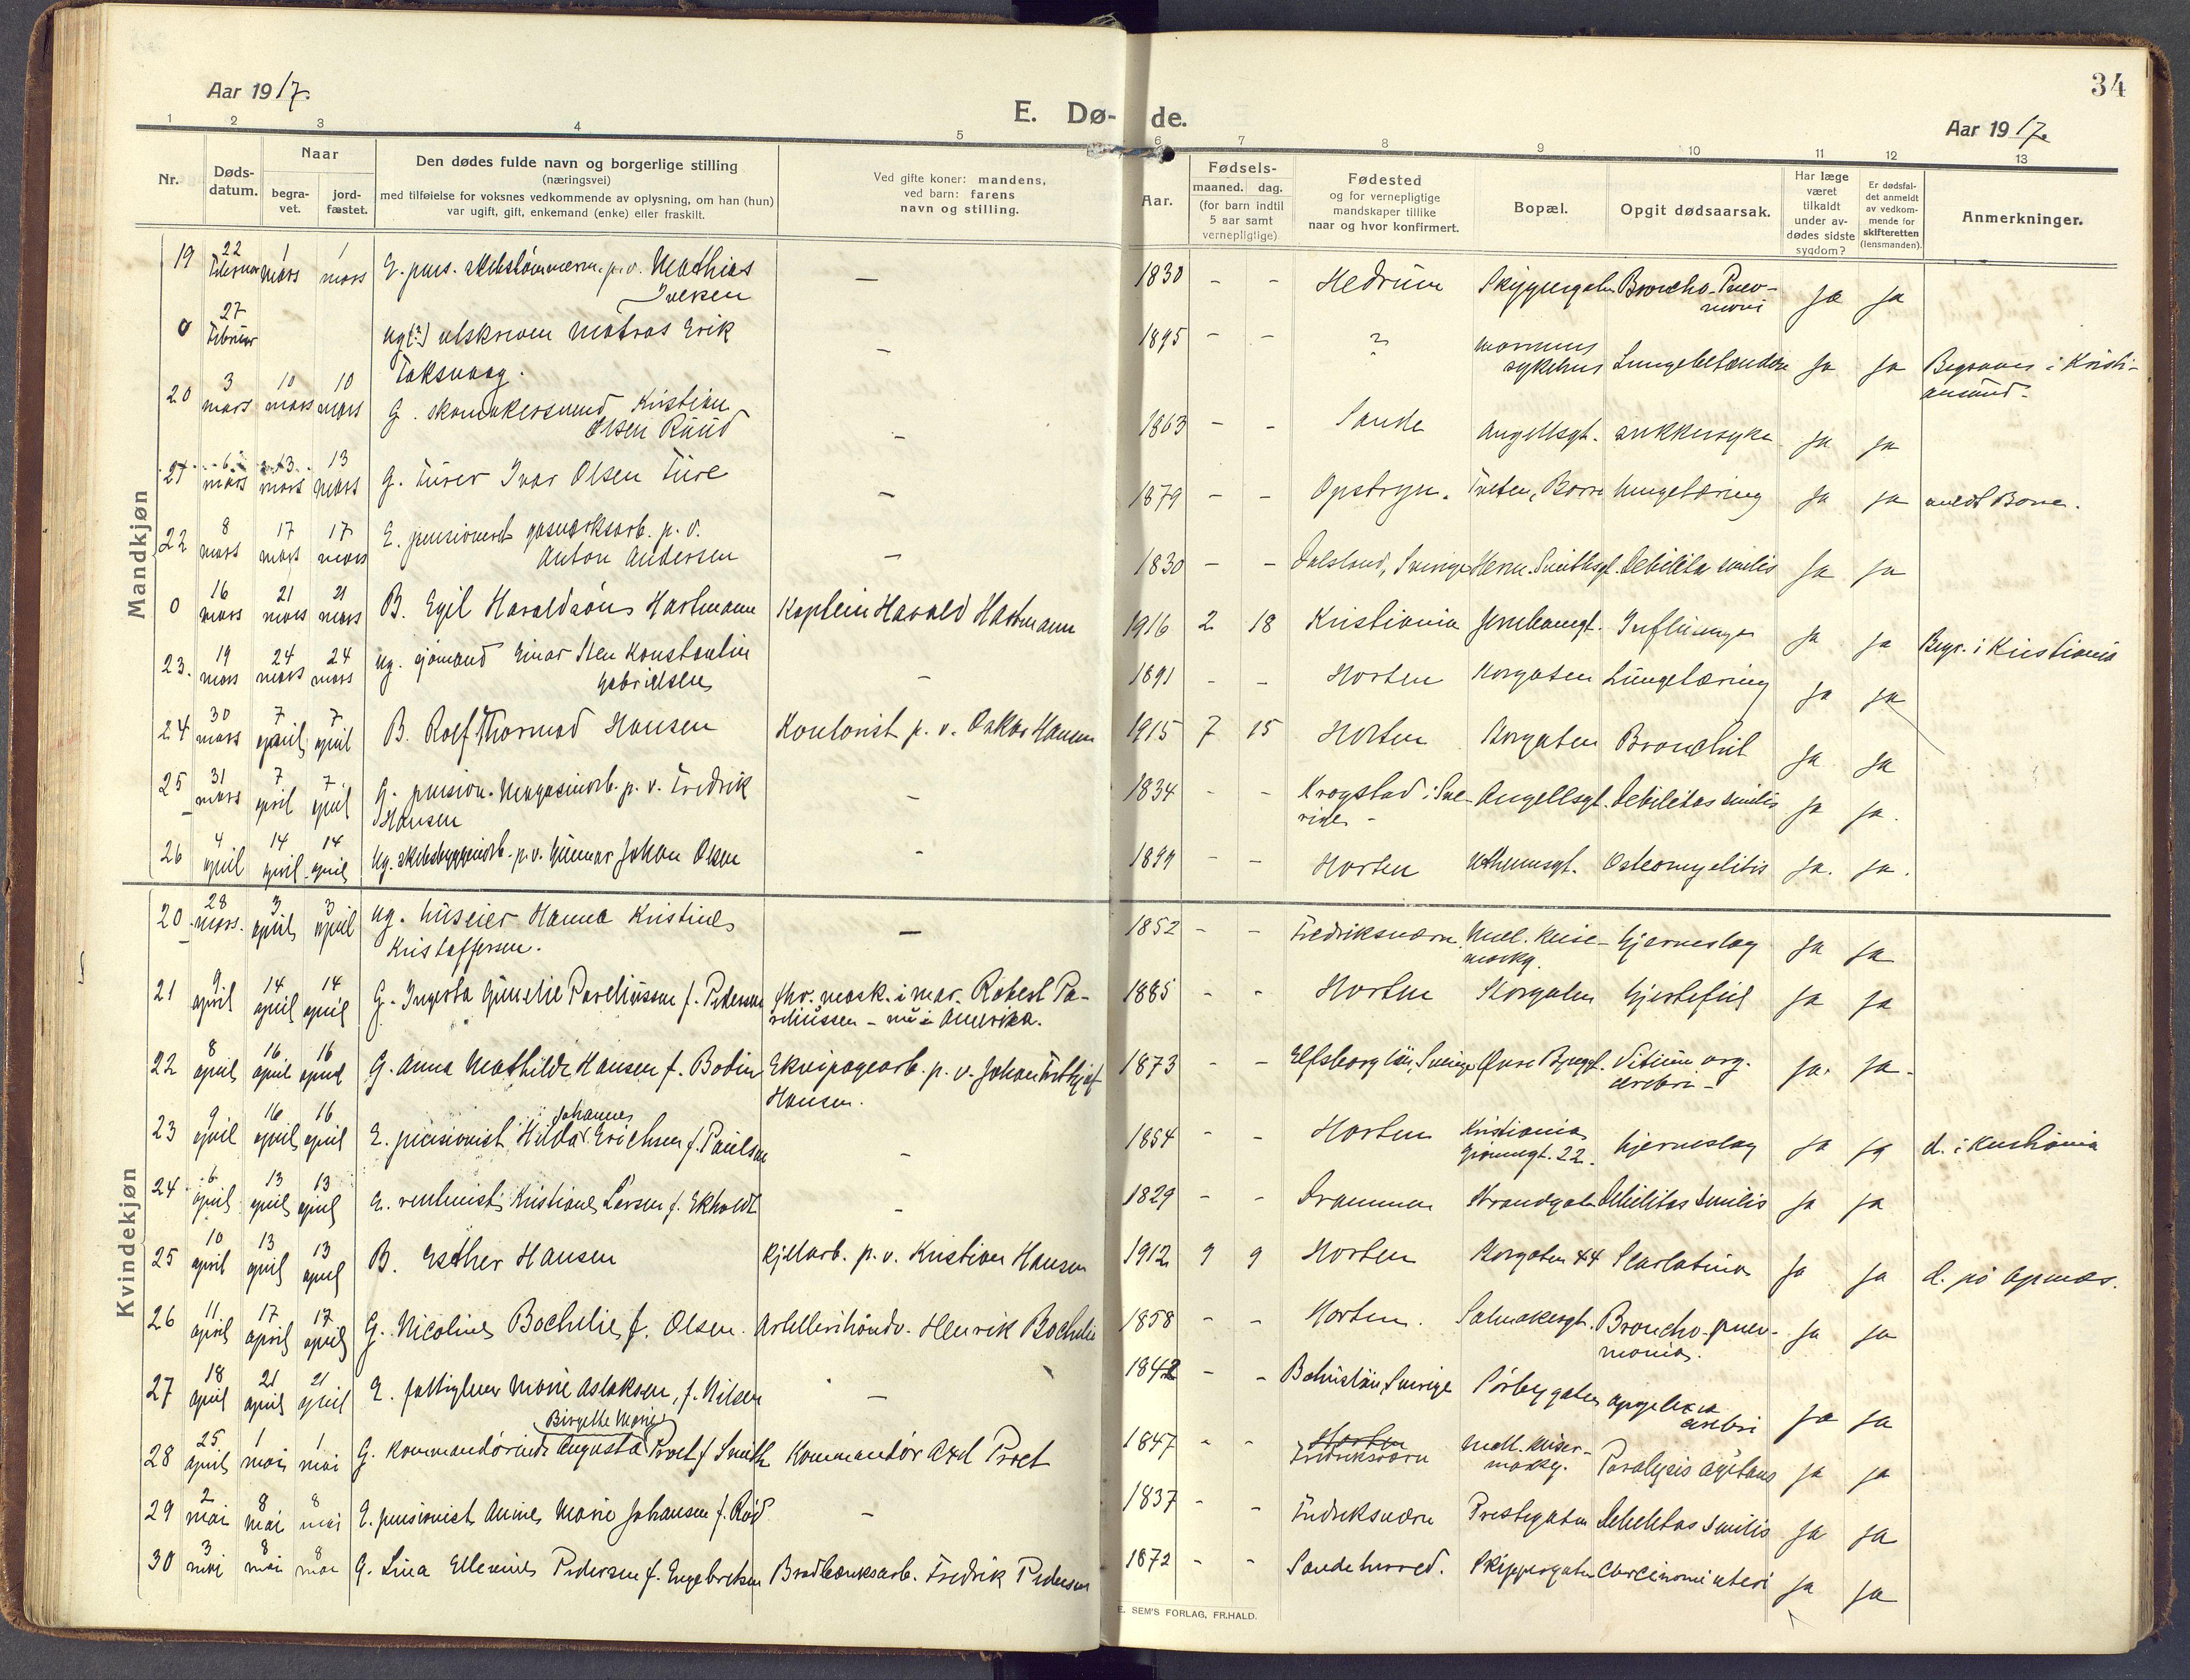 34
Aar 1917.
E. Dø-
de.
Aar 1917.
1 2 3 4 5 6 7 8 9 10 11 12 13
Nr.
Døds-
datum.
Naar
begra-
vet.
jord-
fæstet.
Den dødes fulde navn og borgerlige stilling
(næringsvei)
med tilføielse for voksnes vedkommende av oplysning, om han (hun)
var ugift, gift, enkemand (enke) eller fraskilt.
Ved gifte koner: mandens,
ved barn: farens
navn og stilling.
Aar.
Fødsels-
maaned. dag.
(for barn indtil
5 aar samt
vernepligtige)
Fødested
og for vernepligtige
mandskaper tillike
naar og hvor konfirmert.
Bopæl.
Opgit dødsaarsak.
Har læge
været
tilkaldt
under av-
dødes sidste
sygdom?
Er dødsfal-
det anmeldt
av vedkom-
mende for
skifteretten
(lensmanden).
Anmerkninger.
Mandkjøn
19 22 Februar 1 mars 1 mars E. pens. skibstømmerm. p. v. Mathias Iversen — 1830 - - Hedrum Skippergaten Broncho-Pneu-moni ja ja
0 27 Februar ug (?) utskreven matros Erik Taksvaag. — 1895 - - ? marinens sykehus Lungebetændelse ja ja Begraves i Kristi-ansund.
20 3 mars 10 mars 10 mars G. skomakersvend Kristian Olsen Ruud - 1863 - - Sande Angellsgt. sukkersyke ja ja
21 6 mars 13 mars 13 mars G. Fürer Ivar Olsen Füre — 1879 - - Opstryn. Tveten, Borre Lungetæring ja ja meldt Borre.
22 8 mars 17 mars 17 mars E. pensioneret gasverksarb. p. v. Anton Andersen — 1830 - - Dalsland, Sverige Herm. Smithsgt. Debilitas senilis ja ja
0 16 mars 21 mars 21 mars B. Egil Haraldsøns Hartmann Kaptein Harald Hartmann 1916 2 18 Kristiania Jernbanegt. Influenza ja ja Begr. i Kristiania
23. 19 mars 24 mars 24 mars ug. sjømand Einar Sten Konstantin Gabrielsen - 1891 - - Horten Storgaten Lungetæring ja ja
24 30 mars 7 april 7 april B. Rolf Thormod Hansen Kontorist p. v. Oskar Hansen 1915 7 15 Horten Storgaten Bronchit ja ja
25 31 mars 7 april 7 april G. pension. Magasinarb. p. v. Fredrik Hansen - 1834 - - Krogstad i Sve-rige - Angellsgt. Debilitas senilis ja ja.
26 4 april 14 april 14 april Ug. skibsbyggeriarb. p. v. Gunnar Johan Olsen - 1899 - - Horten Osteomyelitis ja. ja.
Kvindekjøn
20 28 mars. 3 april 3 april ug. huseier Hanna Kristine Kristoffersen. — 1852 - - Fredriksværn. Mell. Keise-markg. hjerneslag ja ja
21 9 april 14 april 14 april G. Ingerta Gunelie Paveliussen f. Pedersen fhv. mask. i mar. Robert Pa-veliussen - nu i Amerika. 1885 - - Horten Storgaten hjertefeil ja ja
22 8 april 16 april 16 april G. Anna Mathilde Hansen f. Bodin Ekvipagearb. p. v. Johan Fritkjof Hansen. 1873 - - Elfsborg län, Sverige Øvre Byggt. Vitium org. cerebri - ja. ja.
23 9 april 16 april 16 april E. pensionist Hilda Johanne Erichsen f. Paulsen - 1854 - - Horten Kristiania Grønnegt. 22. hjerneslag ja ja d. i Kristiania
24 6 april 13 april 13 april E. rentenist Kristiane Larsen f. Ekholdt - 1829 - - Drammen Strandgaten Debilitas senilis ja ja
25 10 april 13 april 13 april B. Esther Hansen kjelarb. p. v. Kristian Hansen 1912 9 9 Horten Storgaten 44 Scarlatina ja ja d. på Apenæs.
26 11 april 17 april 17 april G. Nicoline Bochelie f. Olsen. Artillerihåndv. Henrik Bochelie 1858 - - Horten. Salmakergt. Broncho-pneu-monia. ja ja
27 18 april 21 april 21 april E. fattiglem Marie Aslaksen, f. Nilsen — 1842 - - Bohuslän, Sverige Sørbygaten apoplexia cerebri ja ja
28 25 april 1 mai 1 mai G. kommandørinde Augusta Birgitte Marie Proet f. Smith Kommandør Axel Proet 1847 - - Horten Fredriksværn Mell. Keiser-markg. Paralysis agitans ja ja
29 2 mai 8 mai 8 mai E. pensionist Anne Marie Johansen f. Rød - 1837 - - Fredriksværn Prestegaten Debilitas senilis ja ja
30 3 mai 8 mai 8 mai G. Lina Ellevine Pedersen f. Engebretsen Bradbænksarb. Fredrik Pedersen 1872 - - Sande herred. Skippergaten Carcinomi uteri ja ja
E. SEM'S FORLAG, FR.HALD.